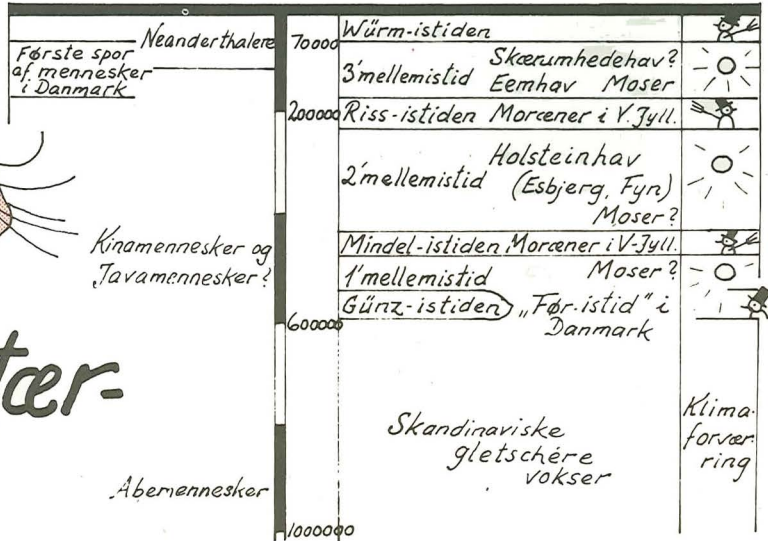 Neanderthalere
Første spor
af mennesker
i Danmark
Kinamennesker og
Javamennesker?
tær-
Abemennesker
70000
200000
600000
1000000
Würm-istiden
3'mellemistid
Skærumhedehav?
Eemhav Moser
Riss-istiden Moræner i V.Jyll.
2'mellemistid
Holsteinhav
(Esbjerg, Fyn)
Moser?
Mindel-istiden Moræner i V-Jyll.
1'mellemistid
Moser?
Günz-istiden
„Før-istid" i
Danmark
Skandinaviske
gletschére
vokser
Klima-
forvær-
ring